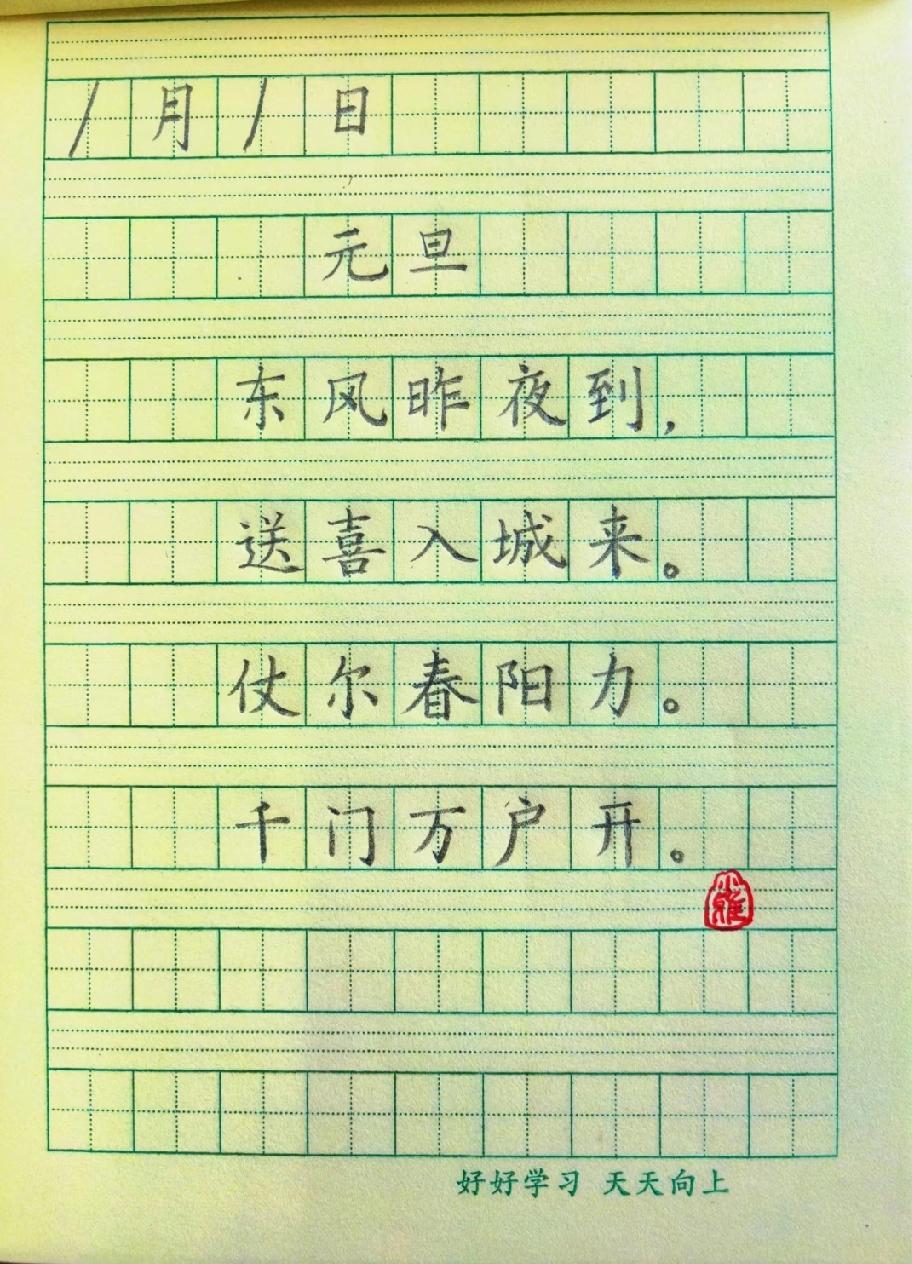 1月1日
元旦
东风昨夜到，
送喜入城来。
仗尔春阳力。
千门万户开。
好好学习 天天向上